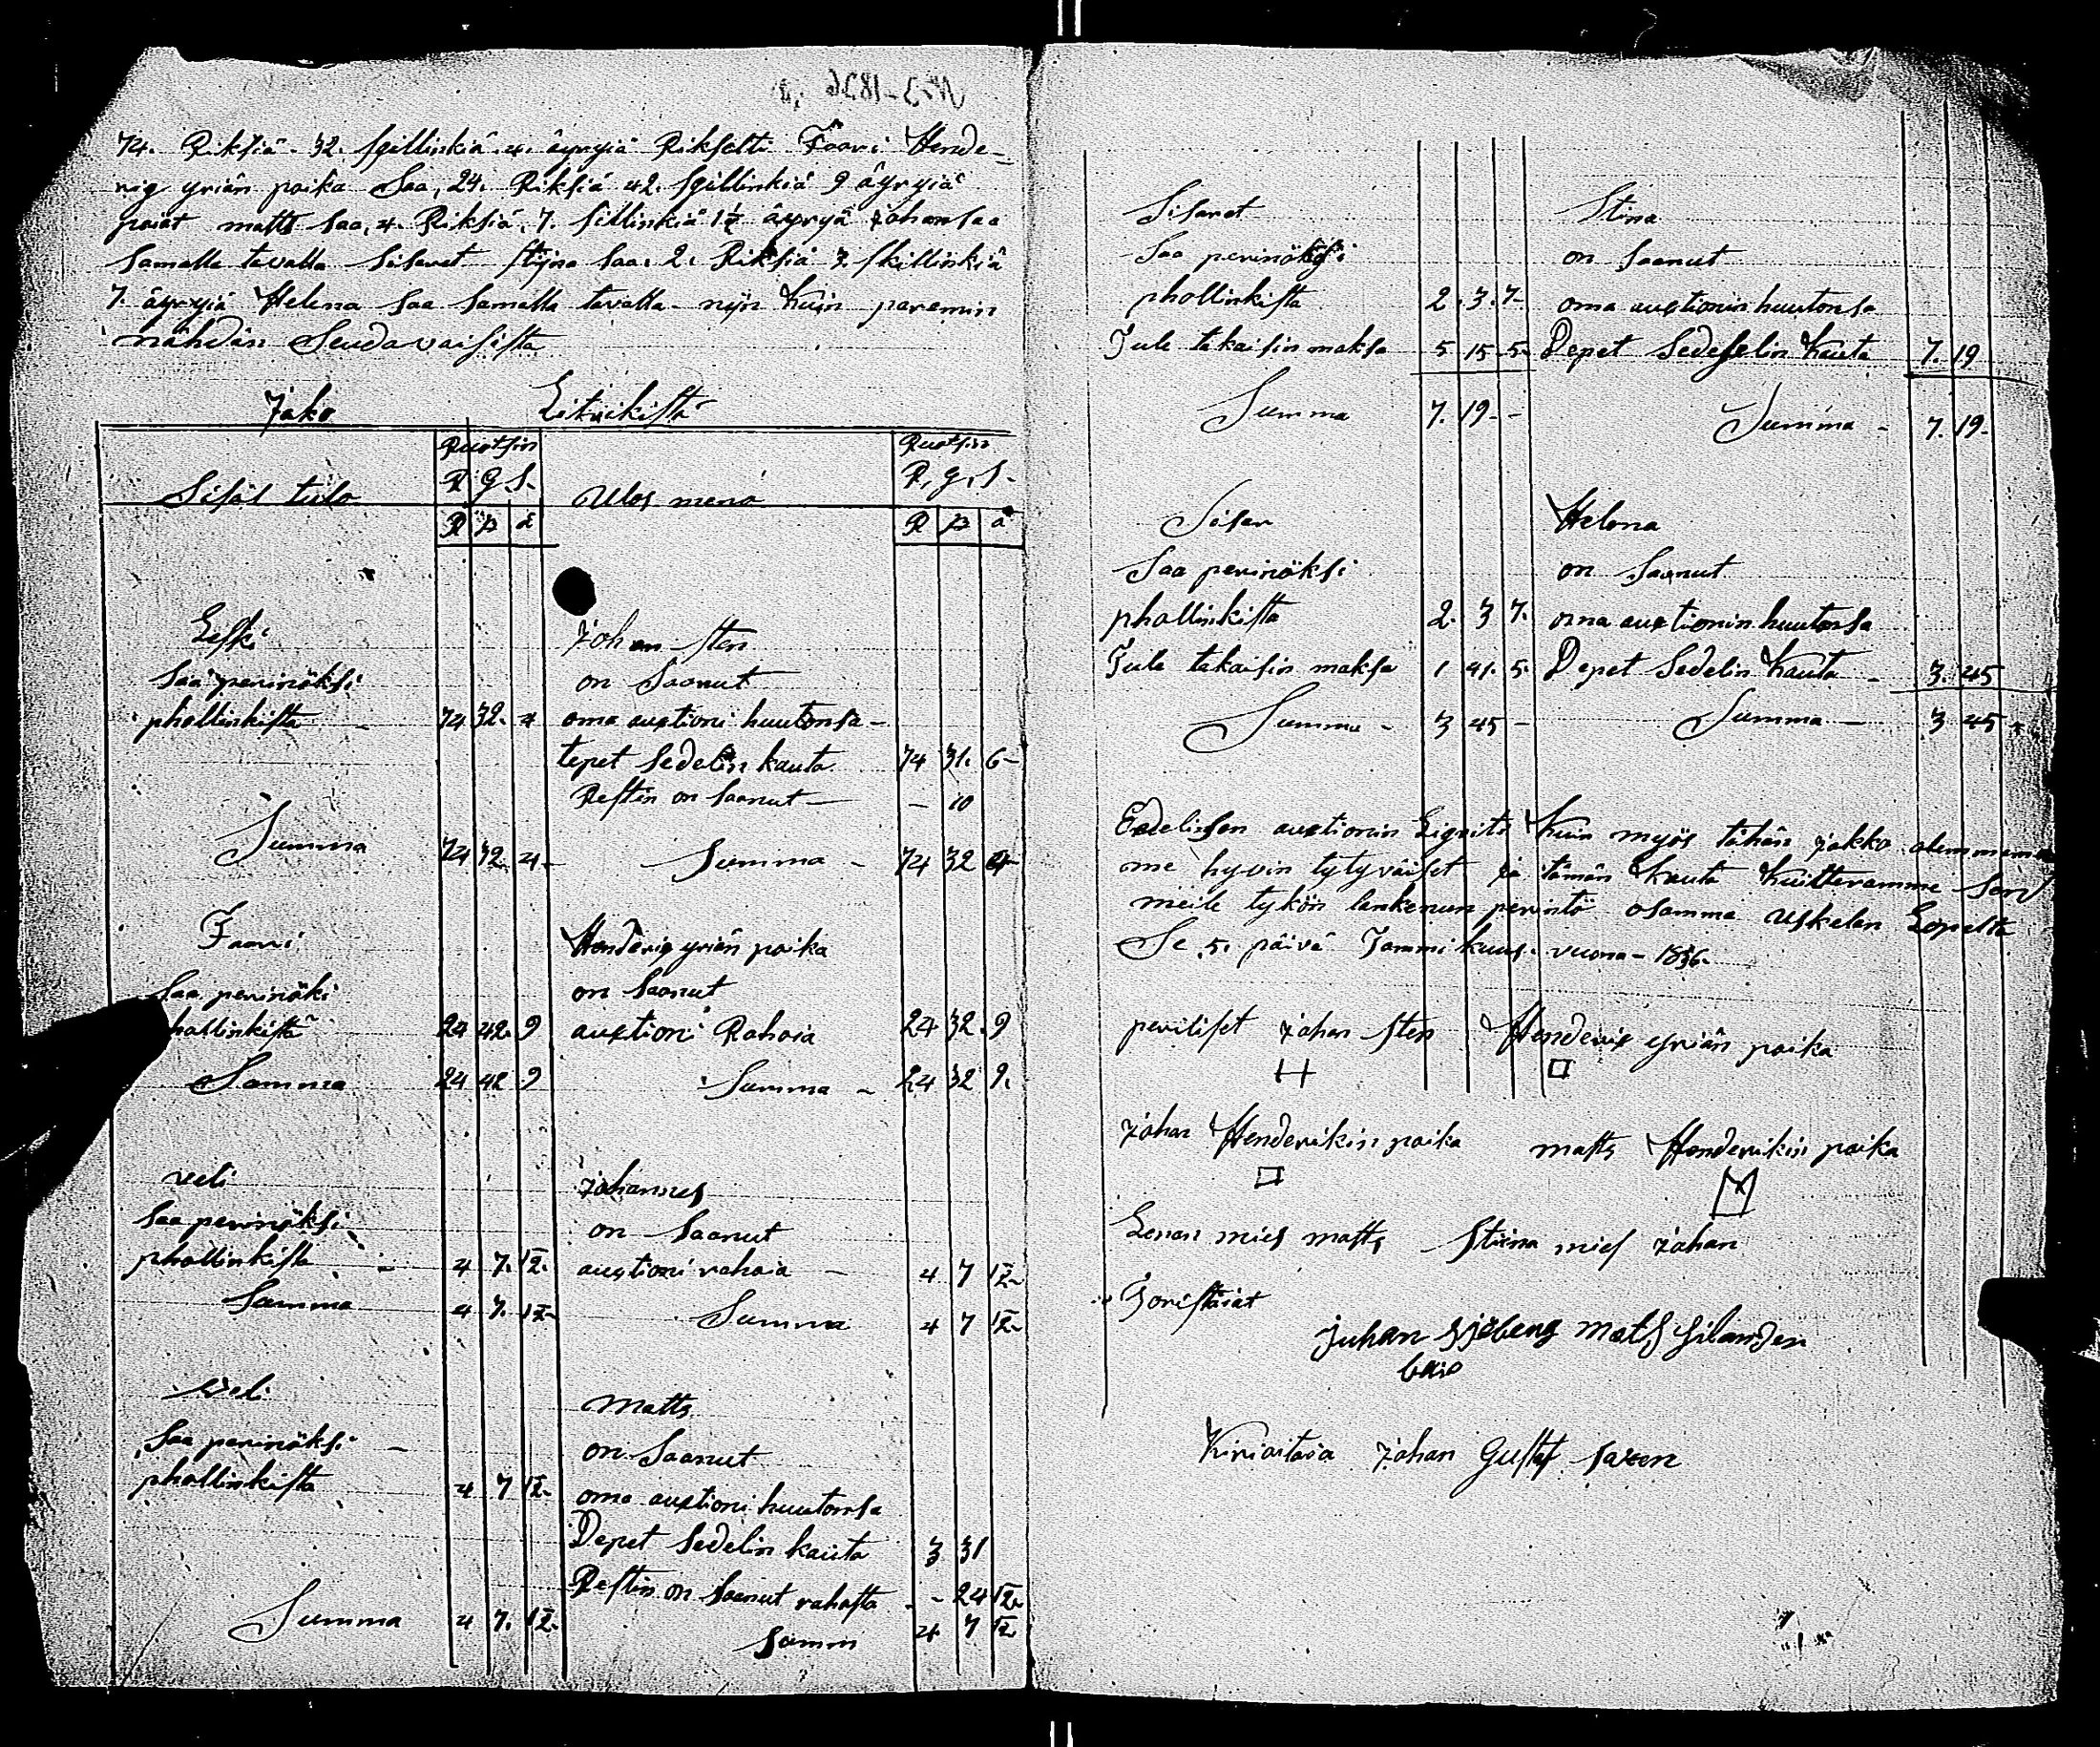 74. Riksiä. 32. skillinkiä. 4. äyryiä Rikseltä Faari Hende=
rig yriän poika Saa, 24. Riksiä 42. skillinkiä 9 äyryiä
poiat matts saa, 4. Riksiä, 7. skillinkiä 1½ äyryä johan saa
Samalla tavalla sisaret stijna saa. 2. Riksiä 3 skillinkiä
7. äyryiä Helena saa Samalla tavalla nijn kuin paremin
nähdän Seuravaisista
Jako
Sisäl tulo
Ruotsin
R. g. s.
R ß ä
Ulos menö
Ruotsin
R. g. s.
R ß ä
Leski
Johan sten
Saa perinöksi
on Saanut
phollinkista 74 32. 4 oma auxtioni huutonsa
tepet Sedelin kauta 74 31. 6
Restin on Saanut - 10
Summa 74 32 4 Summa 74 32 4
Faari
Henderig yriän poika
Saa perinöki
on Saanut
phollinkista 24 42. 9 auxtioni Rahoia 24 32. 9
Summa 24 42 9 Summa 24 32 9.
veli
johannes
Saa perinöksi
on Saanut
phollinkista 4 7. 1½ auxtioni rahoia 4 7 1½
Summa 4 7. 1½ Summa 4 7 1½
veli
matts
Saa perinöksi
on Saanut
phollinkista 4 7 1½ oma auxtioni huutonsa
Depet Sedelin kauta 3 31
Restin on Saanut rahasta - 24 1½
Summa 4 7. 1½ Somm 4 7 1½
Sisaret
Stina
Saa perinöksi
on Saanut
phollinkista 2. 3. 7 oma auxtionin huutonsa
Tule takaisin maksa 5 15 5 Depet Sedelin kauta 7. 19
Summa 7. 19 - Summa 7. 19
Sisar
Helena
Saa perinöksi
on Saanut
phollinkista 2. 3 7. oma auxtionin huutonsa
Tule takaisin maksa 1 41. 5 Depet Sedelin kauta 3. 45
Summa 3 45 Summa 3 45
Edelisen auxtionin kuin myös tähän jakko olemma
me hyvin tytyväiset ja tämän kauta kuittaramme sen
meile tykön lankenun perintö osamma uskelan
Se 5. päivä Tammi kuus. vuona 1836.
periliset johan Sten Henderig yriän poika
johan Henderikin poika matts Henderikin poika
Lenan mies matts Stiina mies johan
Toristaiat
juhan sjöberg mats silander
Kirioitaia johan Gustaf saxen